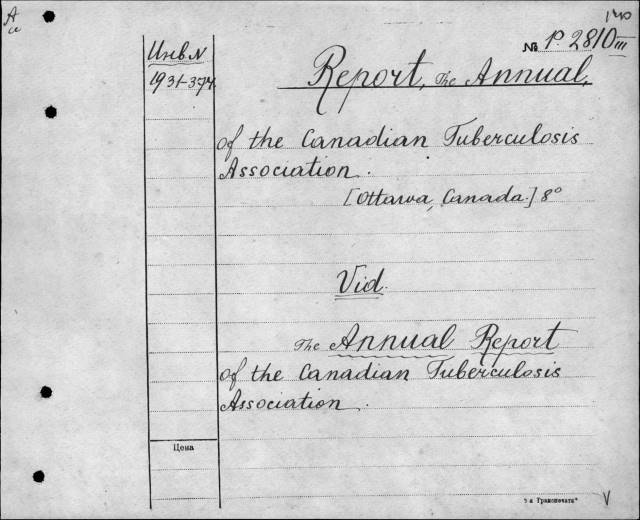 № P. 2810 III
Инв. N
1931-374
Report, The Annual,
of the Canadian Tuberculosis
Association.
[Ottawa, Canada.] 8°
Vid.
The Annual Report
of the Canadian Tuberculosis
Association.
Цена
V